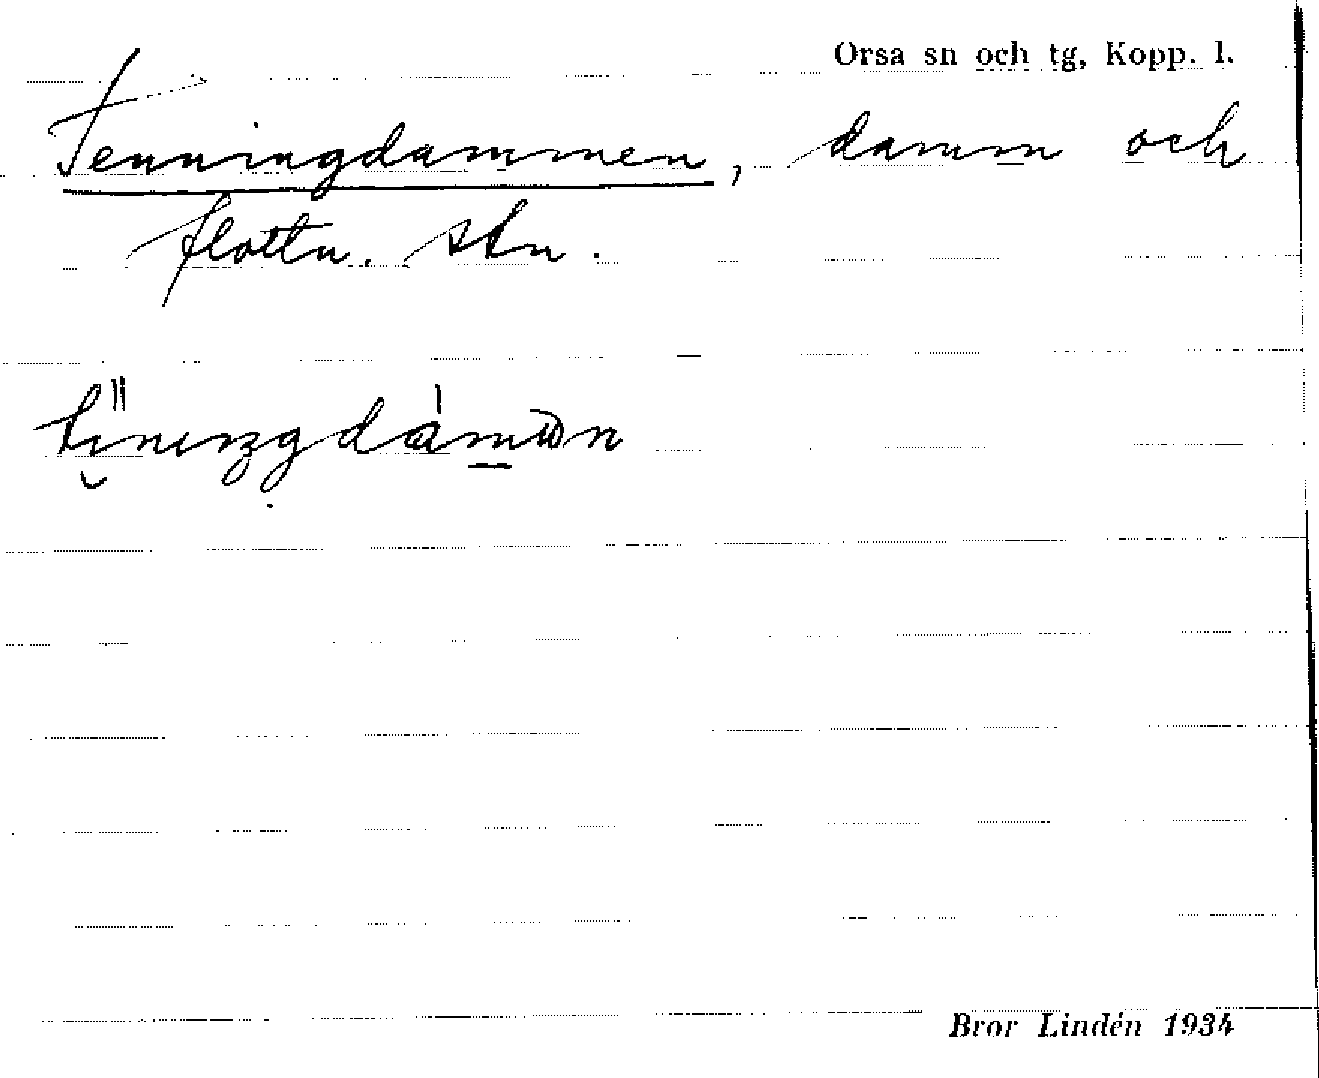 Orsa sn och tg, Kopp. l.
Tenningdammen, damm och
flottn. stn.
Bror Lindén 1934